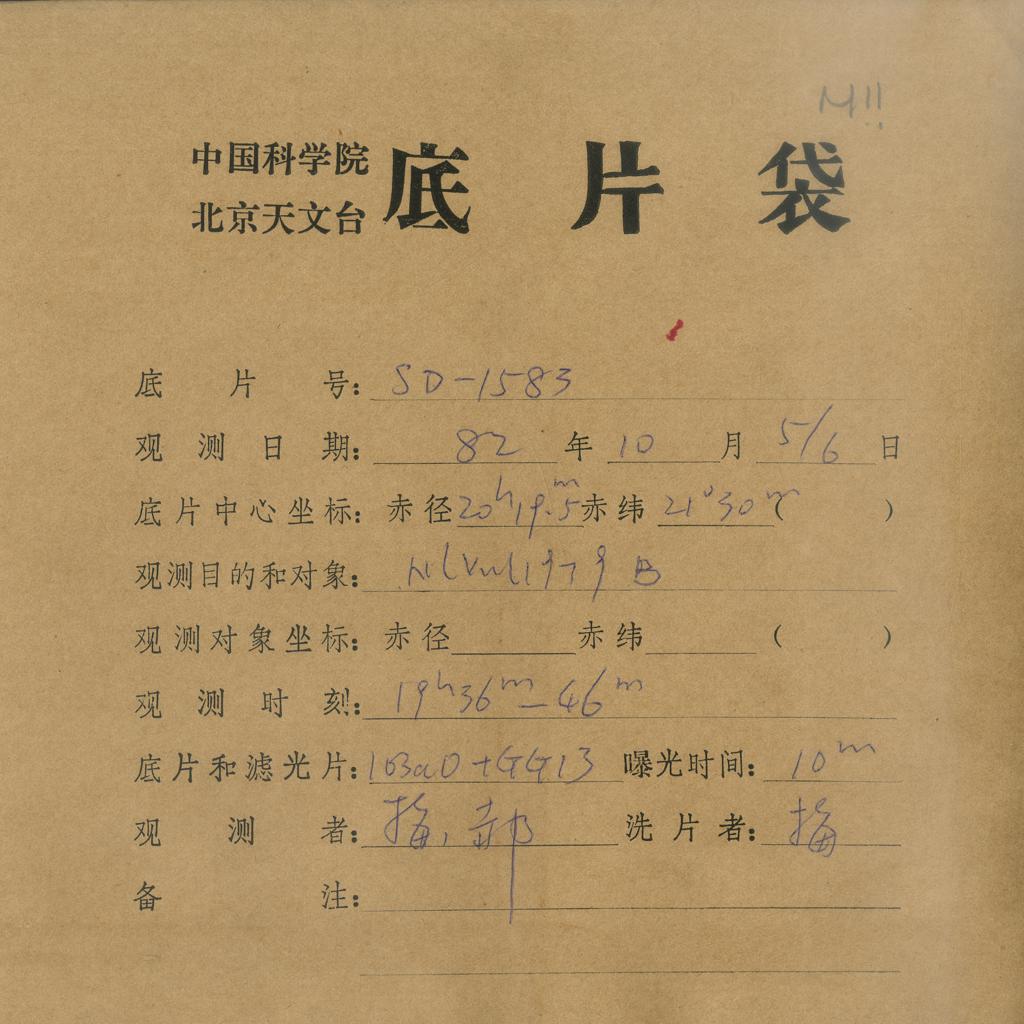 M!!
中国科学院
北京天文台 底片袋
底片号: SD-1583
观测日期: 82年10月5/6日
底片中心坐标: 赤径20h19.5m赤纬21°30m( )
观测目的和对象: N(Vul1979 B
观测对象坐标: 赤径 赤纬 ( )
观测时刻: 19h36m-46m
底片和滤光片: 103aO+GG13 曝光时间: 10m
观测者: 梅,郝 洗片者: 梅
备注: